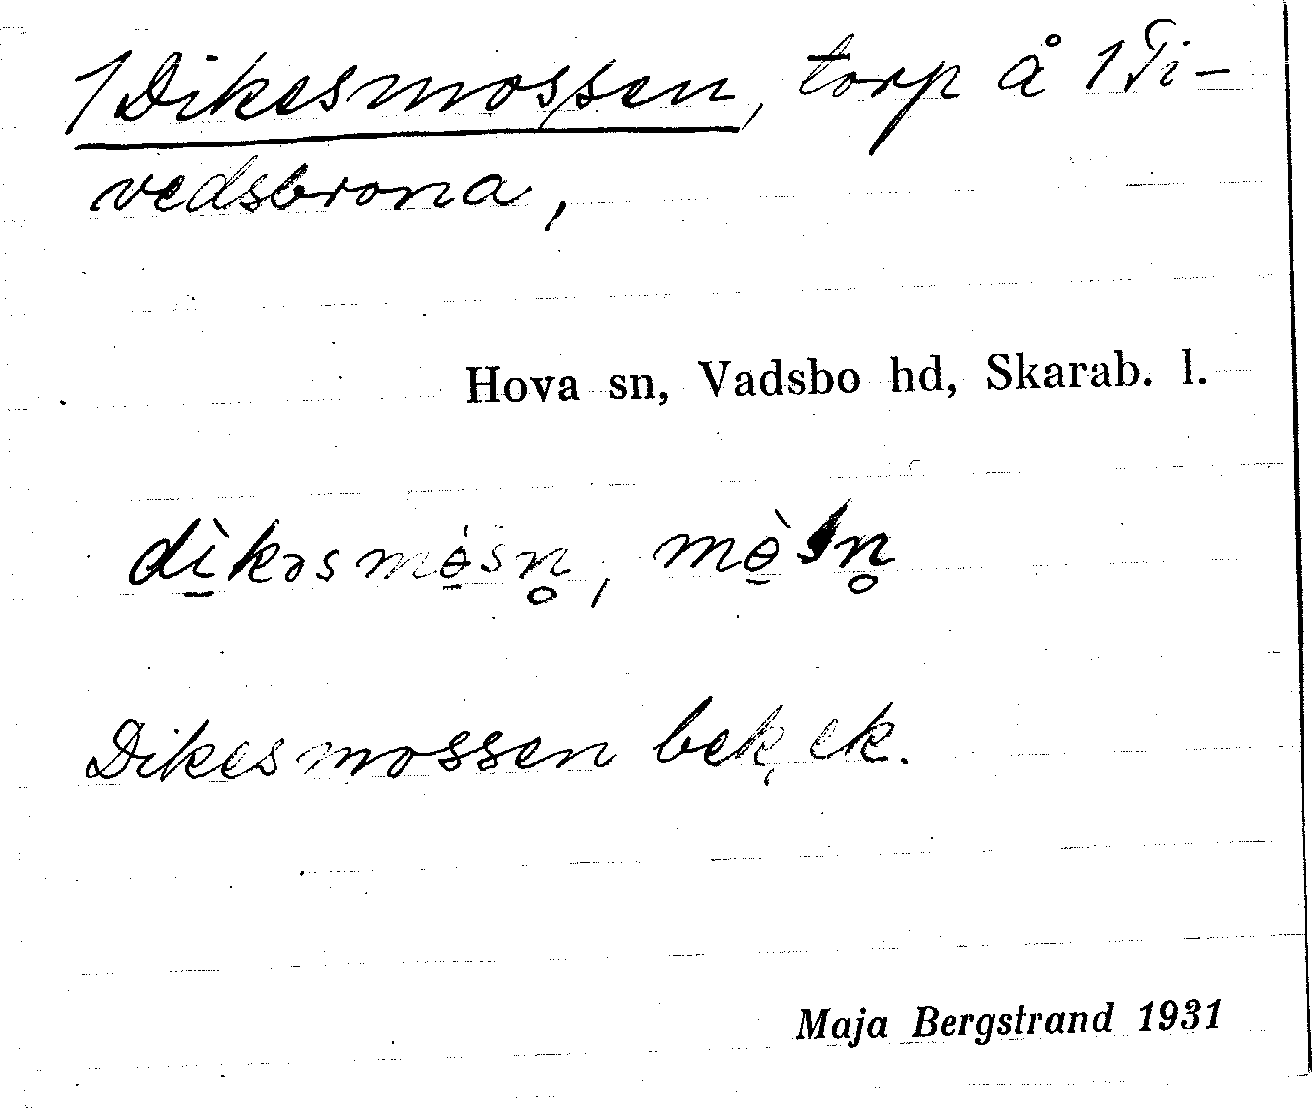 1 Dikesmossen, torp å 1 Ti-
vedsbrona,
Hova sn, Vadsbo hd, Skarab. l.
dì̠kəsmɵ̠̀sn̥, mɵ̠̀sn̥
Dikesmossen bek, ek.
Maja Bergstrand 1931